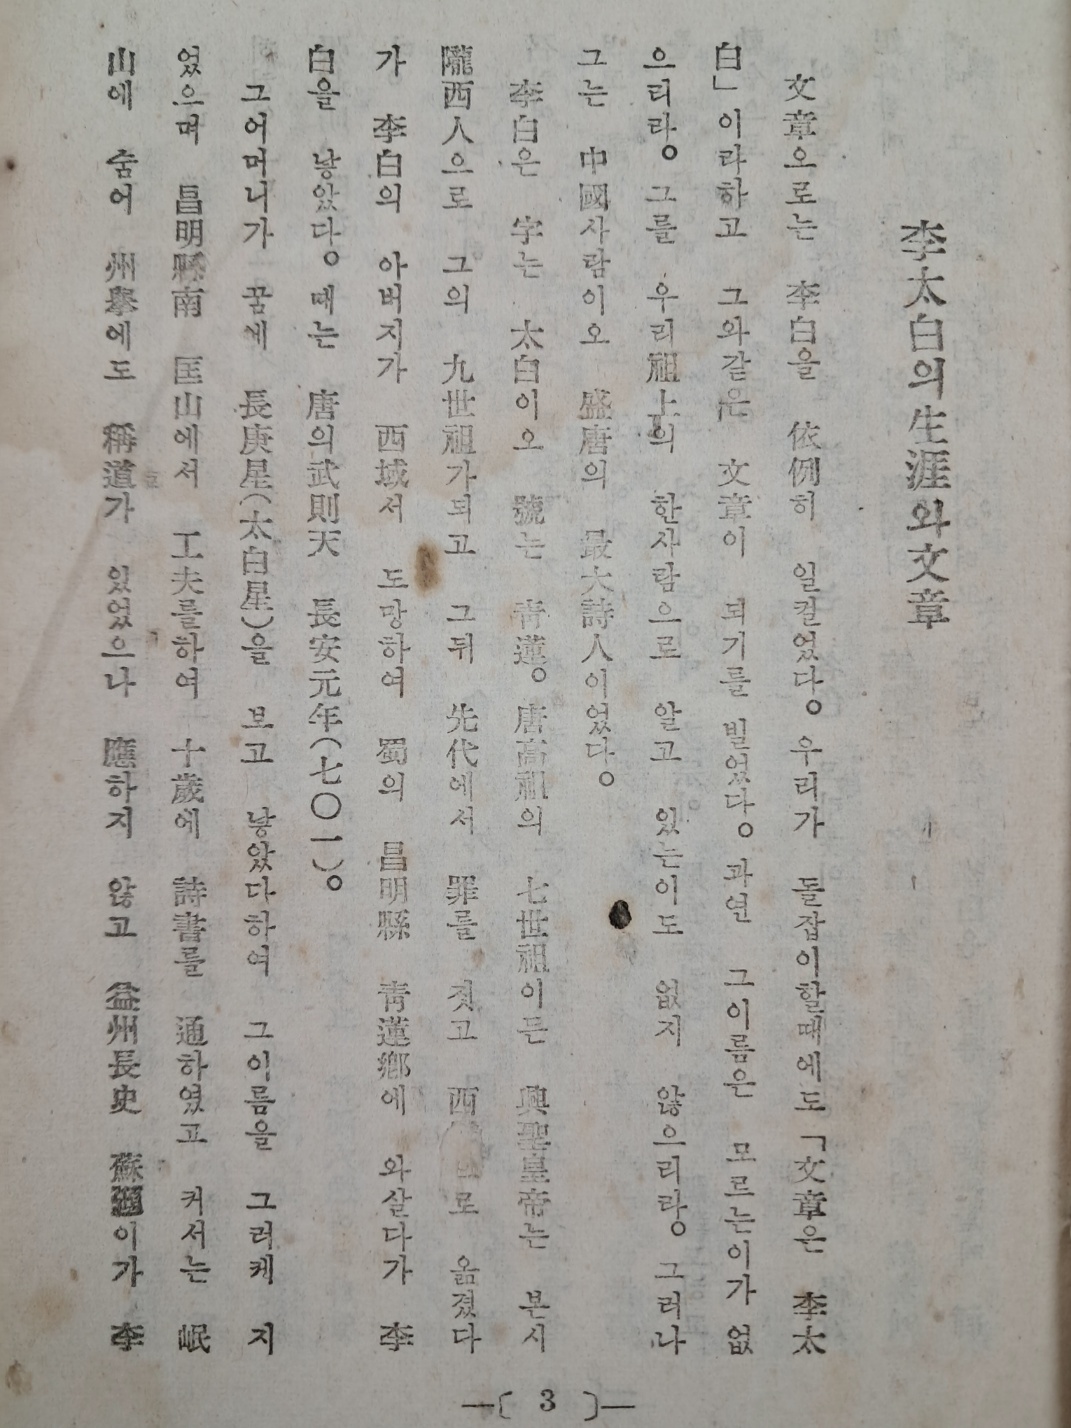 李太白의生涯와文章
文章으로는 李白을 依例히 일컬었다。우리가 돌잡이할때에도「文章은 李太
白」이라하고 그와같은 文章이 되기를 빌었다。과연 그이름은 모르는이가 없
으리라。그를 우리祖上의 한사람으로 알고 있는이도 없지 않으리라。그러나
그는 中國사람이오 盛唐의 最大詩人이었다。
李白은 字는 太白이오 號는 靑蓮。唐高祖의 七世祖이든 興聖皇帝는 본시
隴西人으로 그의 九世祖가되고 그뒤 先代에서 罪를 짓고 西 로 옮겼다
가 李白의 아버지가 西域서 도망하여 蜀의 昌明縣 靑蓮鄕에 와살다가 李
白을 낳았다。때는 唐의武則天 長安元年(七〇一)。
그어머니가 꿈에 長庚星(太白星)을 보고 낳았다하여 그이름을 그러케 지
었으며 昌明縣南 匡山에서 工夫를하여 十歲에 詩書를 通하였고 커서는 岷
山에 숨어 州擧에도 稱道가 있었으나 應하지 않고 益州長史 蘇 이가 李
—〔 3 〕—